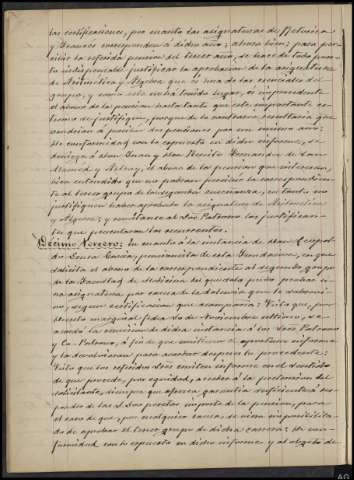 las certificaciones, por cuanto las asignaturas de Retórica
y Francés corresponden á dicho año; ahora bien: para per-
cibir la referida pension del tercer año, es de todo pun-
to indispensable justificar la aprobacion de la asignatura
de Aritmética y Algebra que es una de las esenciales del
grupo, y como esto no ha tenido lugar, es improcedente
el abono de la pension hasta tanto que este importante es-
tremo se justifique, porque de lo contrario resultaria que
vendrian á percibir dos pensiones para un mismo año:
De conformidad con lo espuesto en dicho informe, se
deniega á don Juan y don Benito Fernandez de San
Mamed y Nelray, el abono de la pension que interesan,
bien entendido que no podran percibir la correspondien-
te al tercer grupo de la segunda enseñanza, en tanto no
justifiquen haber aprobado la asignatura de Aritmética
y Algebra; y remitanse al Sr. Patrono los justifican-
tes que presentaron los recurrentes.
Décimo tercero: En cuanto á la instancia de don Leopol-
do Sousa Garcia, pensionista de esta Fundacion, en que
solicita el abono de la correspondiente al segundo grupo
de la Facultad de Medicina sin que deba probar
una asignatura por causa de la
segun certificacion que acompaña: Visto que, por
decreto marginal fecha de Noviembre último, se a-
cordó la remision de dicha instancia á los Sres Patrono
y Co-Patrono, á fin de que emitiesen el oportuno informe
y la devolviesen para acordar despues lo procedente:
Visto que los referidos Sres emiten informe en el sentido
de que procede, por equidad, acceder á la pretension del
solicitante, siempre que ofrezca garantia suficiente á
de las pesetas importe de la pension, para
el caso de que, por cualquier causa, se viera imposibilita-
do de aprobar el tercer grupo de dicha carrera: De con-
formidad con lo espuesto en dicho informe y al objeto de